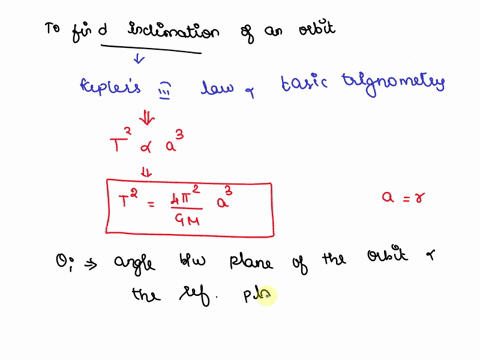 To find inclination of an orbit
↓
Kepler's III law & basic trignometry
⇓
T² ∝ a³
⇓
T² = 4π²/GM a³
a = r
θi ⇒ angle b/w plane of the orbit &
the ref. pla